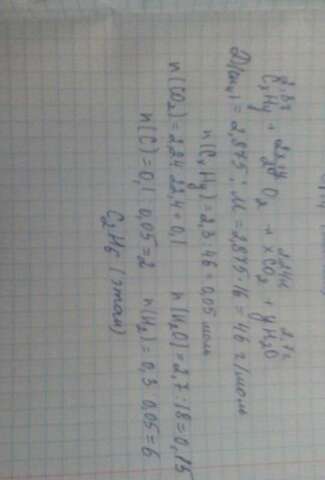 2,3г 2,24л 2,7г
CxHy + O2 → xCO2 + yH2O
D(CH4) = 2,875; M = 2,875·16 = 46 г/моль
n(CxHy) = 2,3:46 0,05 моль
n(CO2) = 2,24 22,4 = 0,1 n(H2O) = 2,7:18 = 0,15
n(C) = 0,1 0,05 = 2 n(H2) = 0,3 0,05 = 6
C2H6 (этан)